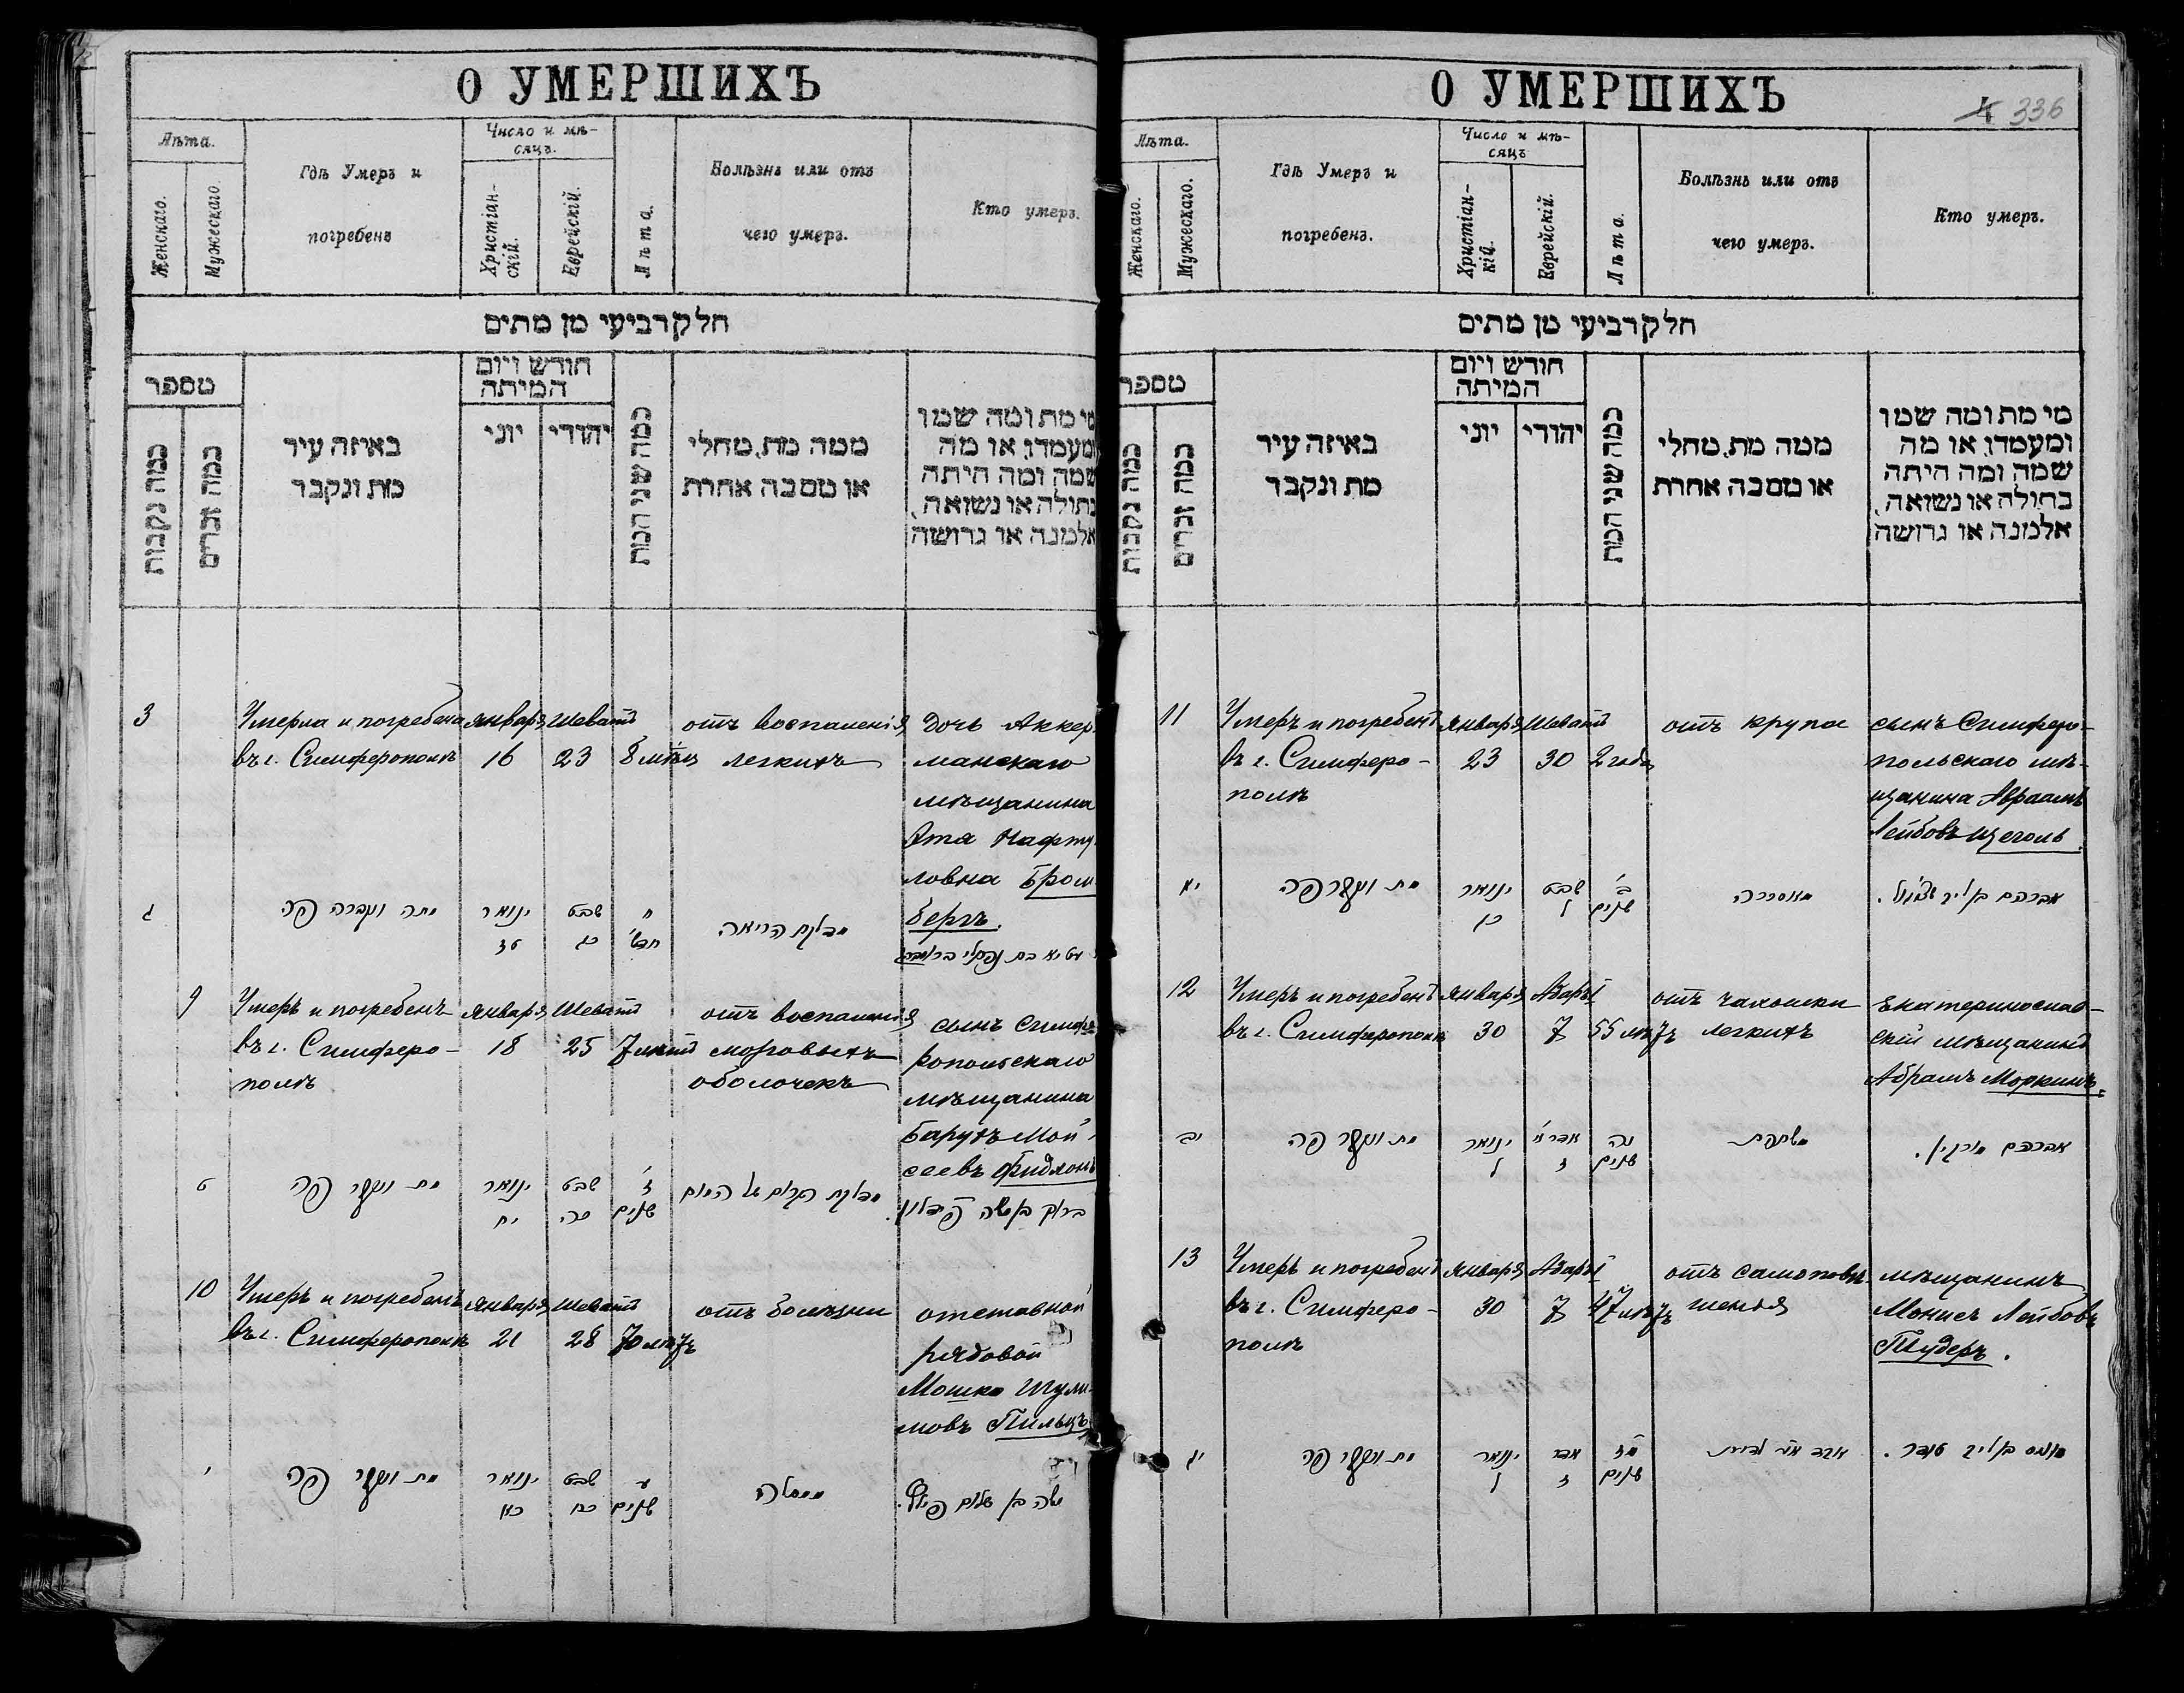 О УМЕРШИХЪ
Лѣта.
Женскаго.
Мужескаго.
Гдѣ Умеръ и
погребенъ
Число и мѣ-
сяцъ.
Христіан-
скій.
Еврейскій.
Лѣта.
Болѣзнь или отъ
чего умеръ.
Кто умеръ.
חלק רביעי מן מתים
מספר
כמה נקבות
כמה זכרים
באיזה עיר
מת ונקבר
חודש ויום
המיתה
יוני
יהודי
כמה שני המת
ממה מת, מחלי
או מסבה אחרת
מי מת ומה שמו
ומעמדו, או מה
שמה ומה היתה
בתולה או נשואה,
אלמנה או גרושה
3
Умерла и погребена
въ г. Симферополѣ
Января
16
Шеватъ
23
8 мѣсц
отъ воспаленія
легкихъ
дочь Аккер-
манскаго
мѣщанина
Этя Нафту-
ловна Бром-
бергъ.
ג
מתה ונקברה פה
ינואר
טז
שבט
כג
ח
חדש'
מדלקת הריאה
בת נפתלי
9
Умеръ и погребенъ
въ г. Симферо-
полѣ
Января
18
Шеватъ
25
7 лѣтъ
отъ воспаленія
мозговыхъ
оболочекъ
сынъ Симфе-
ропольскаго
мѣщанина
Барухъ Мой-
сеевъ Фидлонъ
ט
מת ונקבר פה
ינואר
יח
שבט
כה
ז'
שנים
מדלקת קרום של המוח
ברוך בן משה פידלון.
10
Умеръ и погребенъ
въ г. Симферополѣ
Января
21
Шеватъ
28
70 лѣтъ
отъ болѣзни
отставной
рядовой
Мошко Шули-
мовъ Пильцъ
י
מת ונקבר פה
ינואר
כא
שבט
כח
ע
שנים
ממחלה
משה בן שלום פילץ.
О УМЕРШИХЪ
4 336
Лѣта.
Женскаго.
Мужескаго.
Гдѣ Умеръ и
погребенъ.
Число и мѣ-
сяцъ
Христіан-
кій.
Еврейскій.
Лѣта.
Болѣзнь или отъ
чего умеръ.
Кто умеръ.
חלק רביעי מן מתים
מספר
כמה נקבות
כמה זכרים
באיזה עיר
מת ונקבר
חודש ויום
המיתה
יוני
יהודי
כמה שני המת
ממה מת, מחלי
או מסבה אחרת
מי מת ומה שמו
ומעמדו, או מה
שמה ומה היתה
בתולה או נשואה,
אלמנה או גרושה
11
Умеръ и погребенъ
въ г. Симферо-
полѣ
Января
23
Шеватъ
30
2 года
отъ крупа
сынъ Симферо-
польскаго мѣ-
щанина Авраамъ
Лейбовъ Щеголь.
יא
מת ונקבר פה
ינואר
כג
שבט
ל
ב'
שנים
מאסכרה
אברהם בן ליב
12
Умеръ и погребенъ
въ г. Симферополѣ
Января
30
Адаръ I
7
55 лѣтъ
отъ чахотки
легкихъ
Екатеринослав-
скій мѣщанинъ
Абрамъ Моркинъ.
יב
מת ונקבר פה
ינואר
ל
אדר א'
ז
נה
שנים
משחפת
אברהם מורקין.
13
Умеръ и погребенъ
въ г. Симферо-
полѣ
Января
30
Адаръ I
7
47 лѣтъ
отъ самоповѣ-
шенія
мѣщанинъ
Монисъ Лейбовъ
Тудеръ.
יג
מת ונקבר פה
ינואר
ל
אדר
ז
מז
שנים
מונס בן ליב טודר.